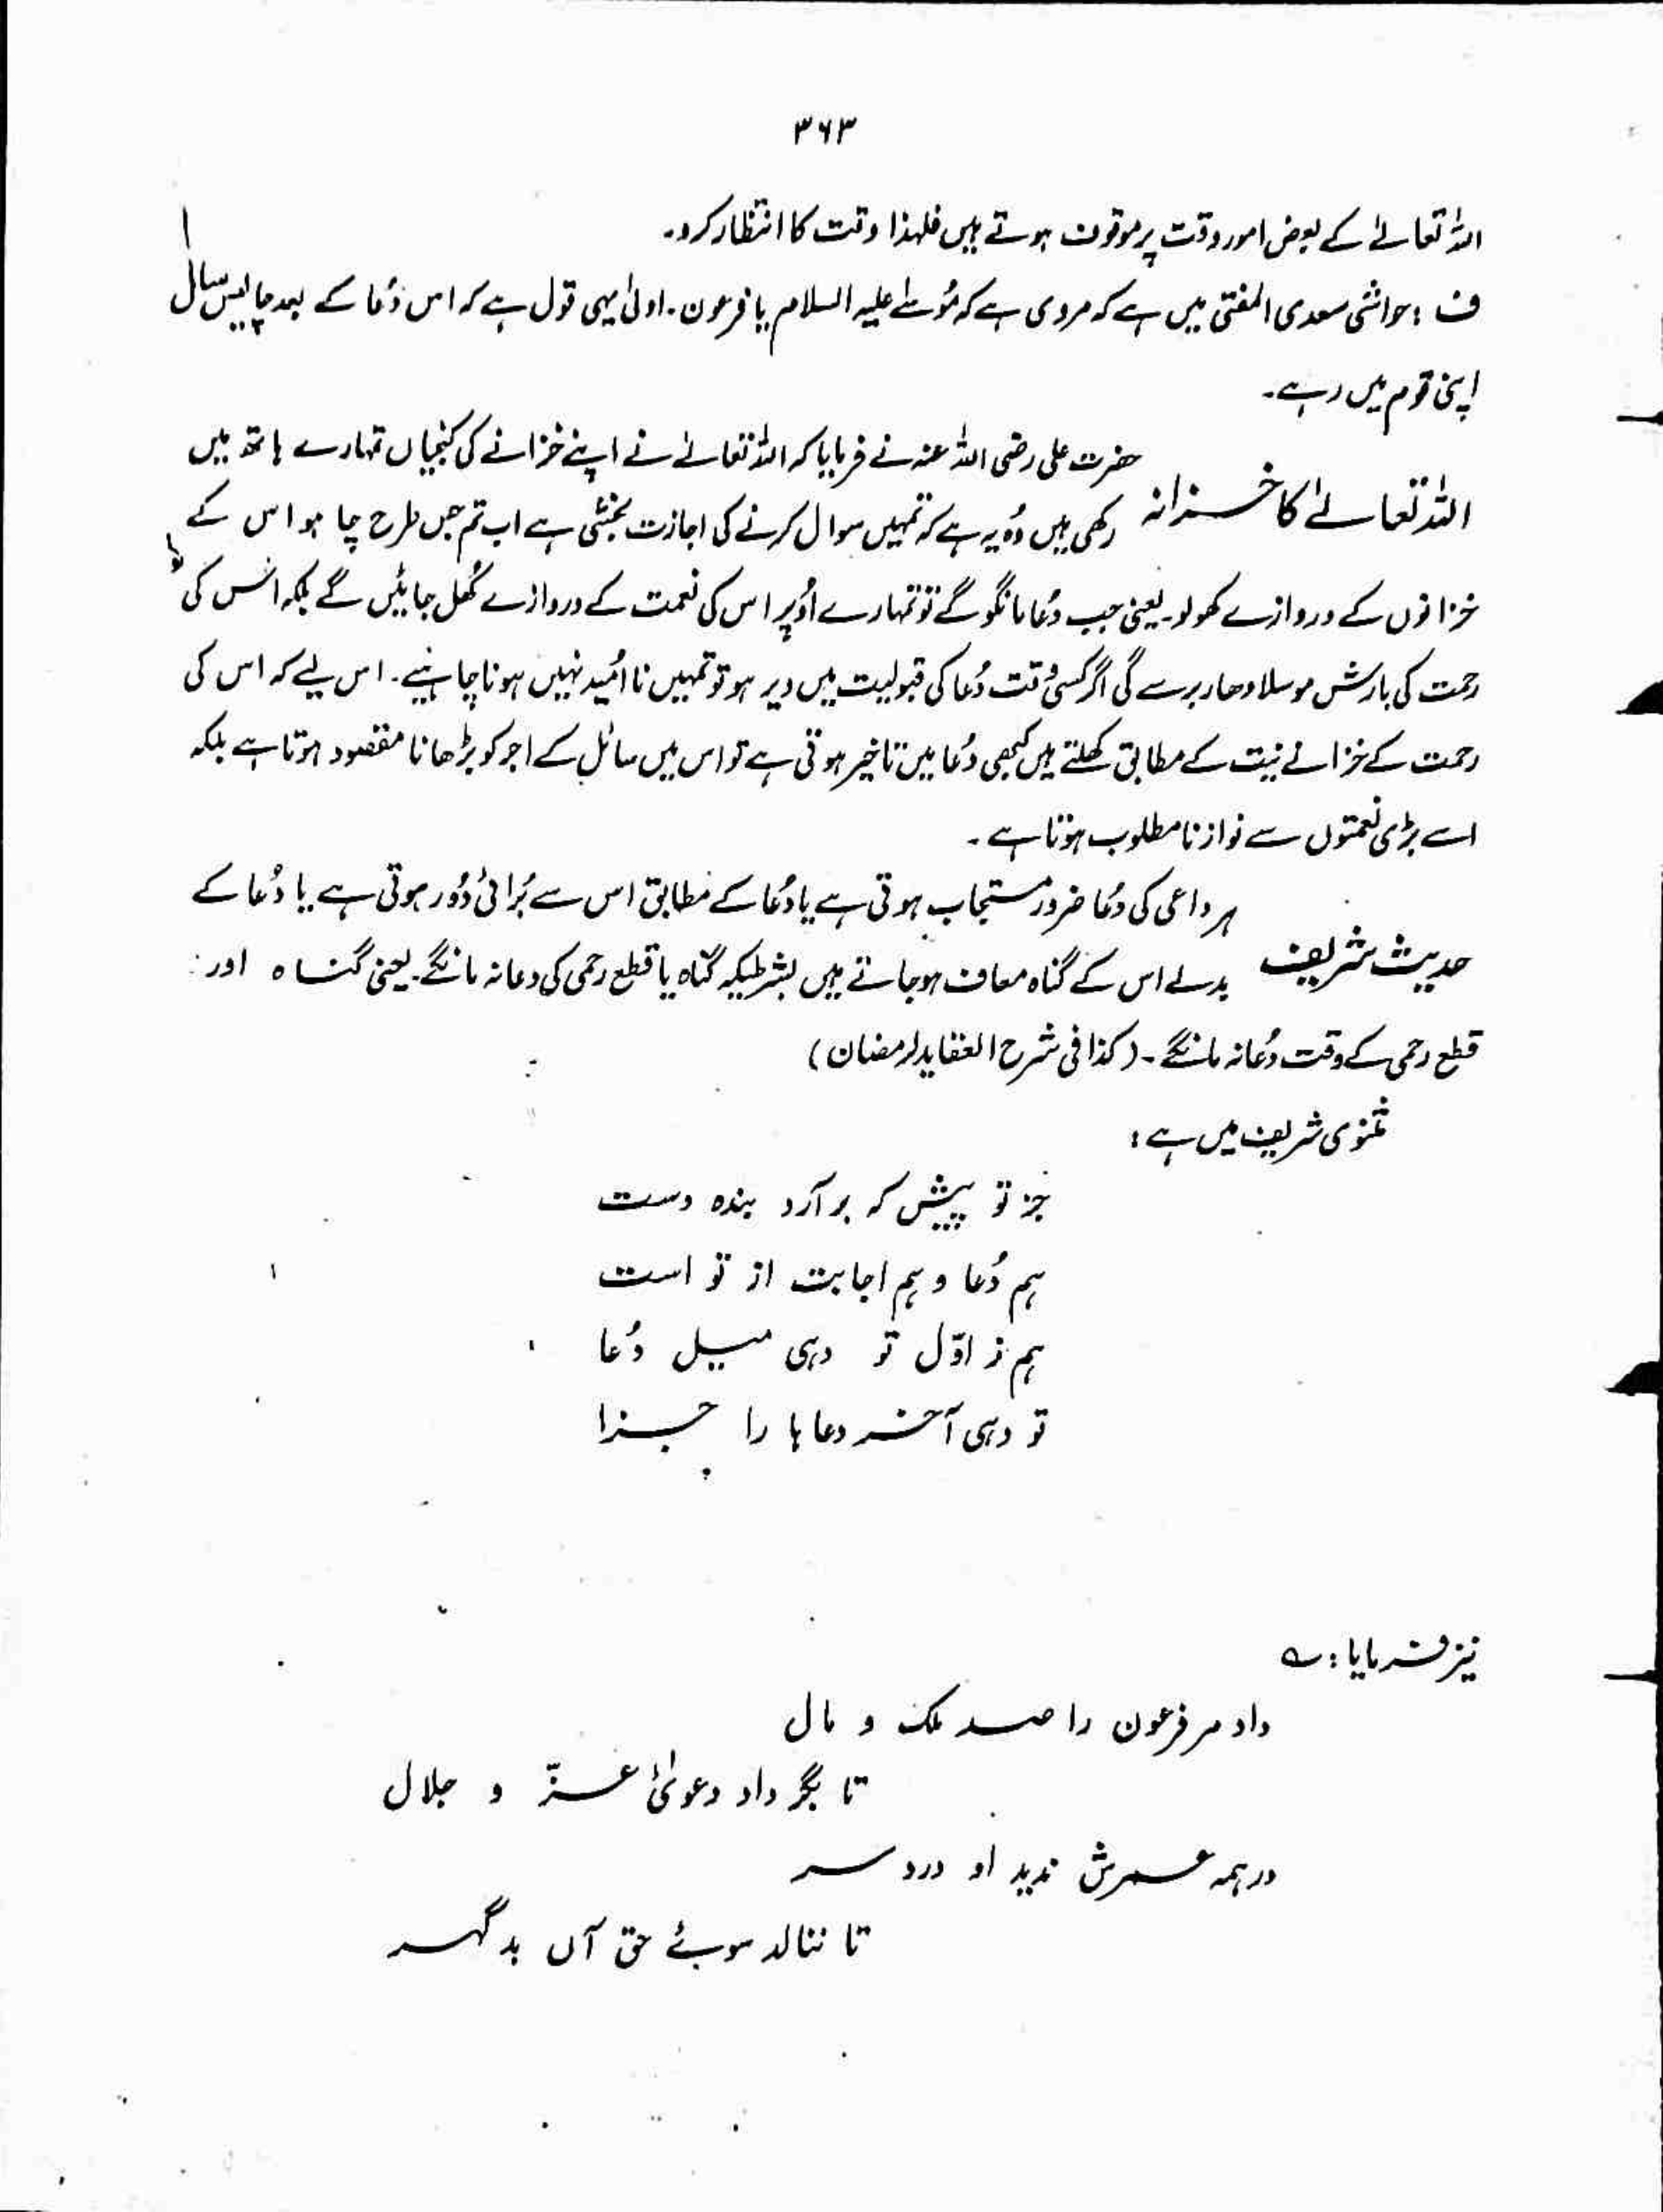 ۳۶۳
اللہ تعالےٰ کے بعض امور وقت پر موقوف ہوتے ہیں فلہٰذا وقت کا انتظار کرو۔
ف : حواشی سعدی المفتی میں ہے کہ مروی ہے کہ مُوسٰے علیہ السلام یا فرعون۔ اولیٰ یہی قول ہے کہ اس دُعا کے بعد چالیس سال
اپنی قوم میں رہے۔
اللہ تعالےٰ کا خزانہ حضرت علی رضی اللہ عنہ نے فرمایا کہ اللہ تعالےٰ نے اپنے خزانے کی کنجیاں تمہارے ہاتھ میں
رکھی ہیں وُہ یہ ہے کہ تمہیں سوال کرنے کی اجازت بخشی ہے اب تم جس طرح چاہو اس کے
خزانوں کے دروازے کھولو۔ یعنی جب دُعا مانگو گے تو تمہارے اُوپر اس کی نعمت کے دروازے کُھل جائیں گے بلکہ اس کی
رحمت کی بارش موسلا دھار برسے گی اگر کسی وقت دُعا کی قبولیت میں دیر ہو تو تمہیں نا اُمید نہیں ہونا چاہیئے۔ اس لیے کہ اس کی
رحمت کے خزانے نیت کے مطابق کھلتے ہیں کبھی دُعا میں تاخیر ہوتی ہے تو اس میں سائل کے اجر کو بڑھانا مقصود ہوتا ہے بلکہ
اسے بڑی نعمتوں سے نوازنا مطلوب ہوتا ہے۔
حدیث شریف ہر داعی کی دُعا ضرور مستجاب ہوتی ہے یا دُعا کے مطابق اس سے بُرائی دُور ہوتی ہے یا دُعا کے
بدلے اس کے گناہ معاف ہو جاتے ہیں بشرطیکہ گناہ یا قطع رحمی کی دعا نہ مانگے۔ یعنی گناہ اور
قطع رحمی کے وقت دُعا نہ مانگے۔ (کذا فی شرح العقاید لرمضان)
مثنوی شریف میں ہے :
جُز تو پیش کہ بر آرد بندہ دست
ہم دُعا و ہم اجابت از تو است
ہم ز اوّل تو دہی میل دُعا
تو دہی آخر دعاہا را جزا
نیز فرمایا : ؎
داد مر فرعون را صد ملک و مال
تا بگرداد دعویٰ عزّ و جلال
در ہمہ عمرش ندید او درد سر
تا ننالد سوئے حق آں بد گہر